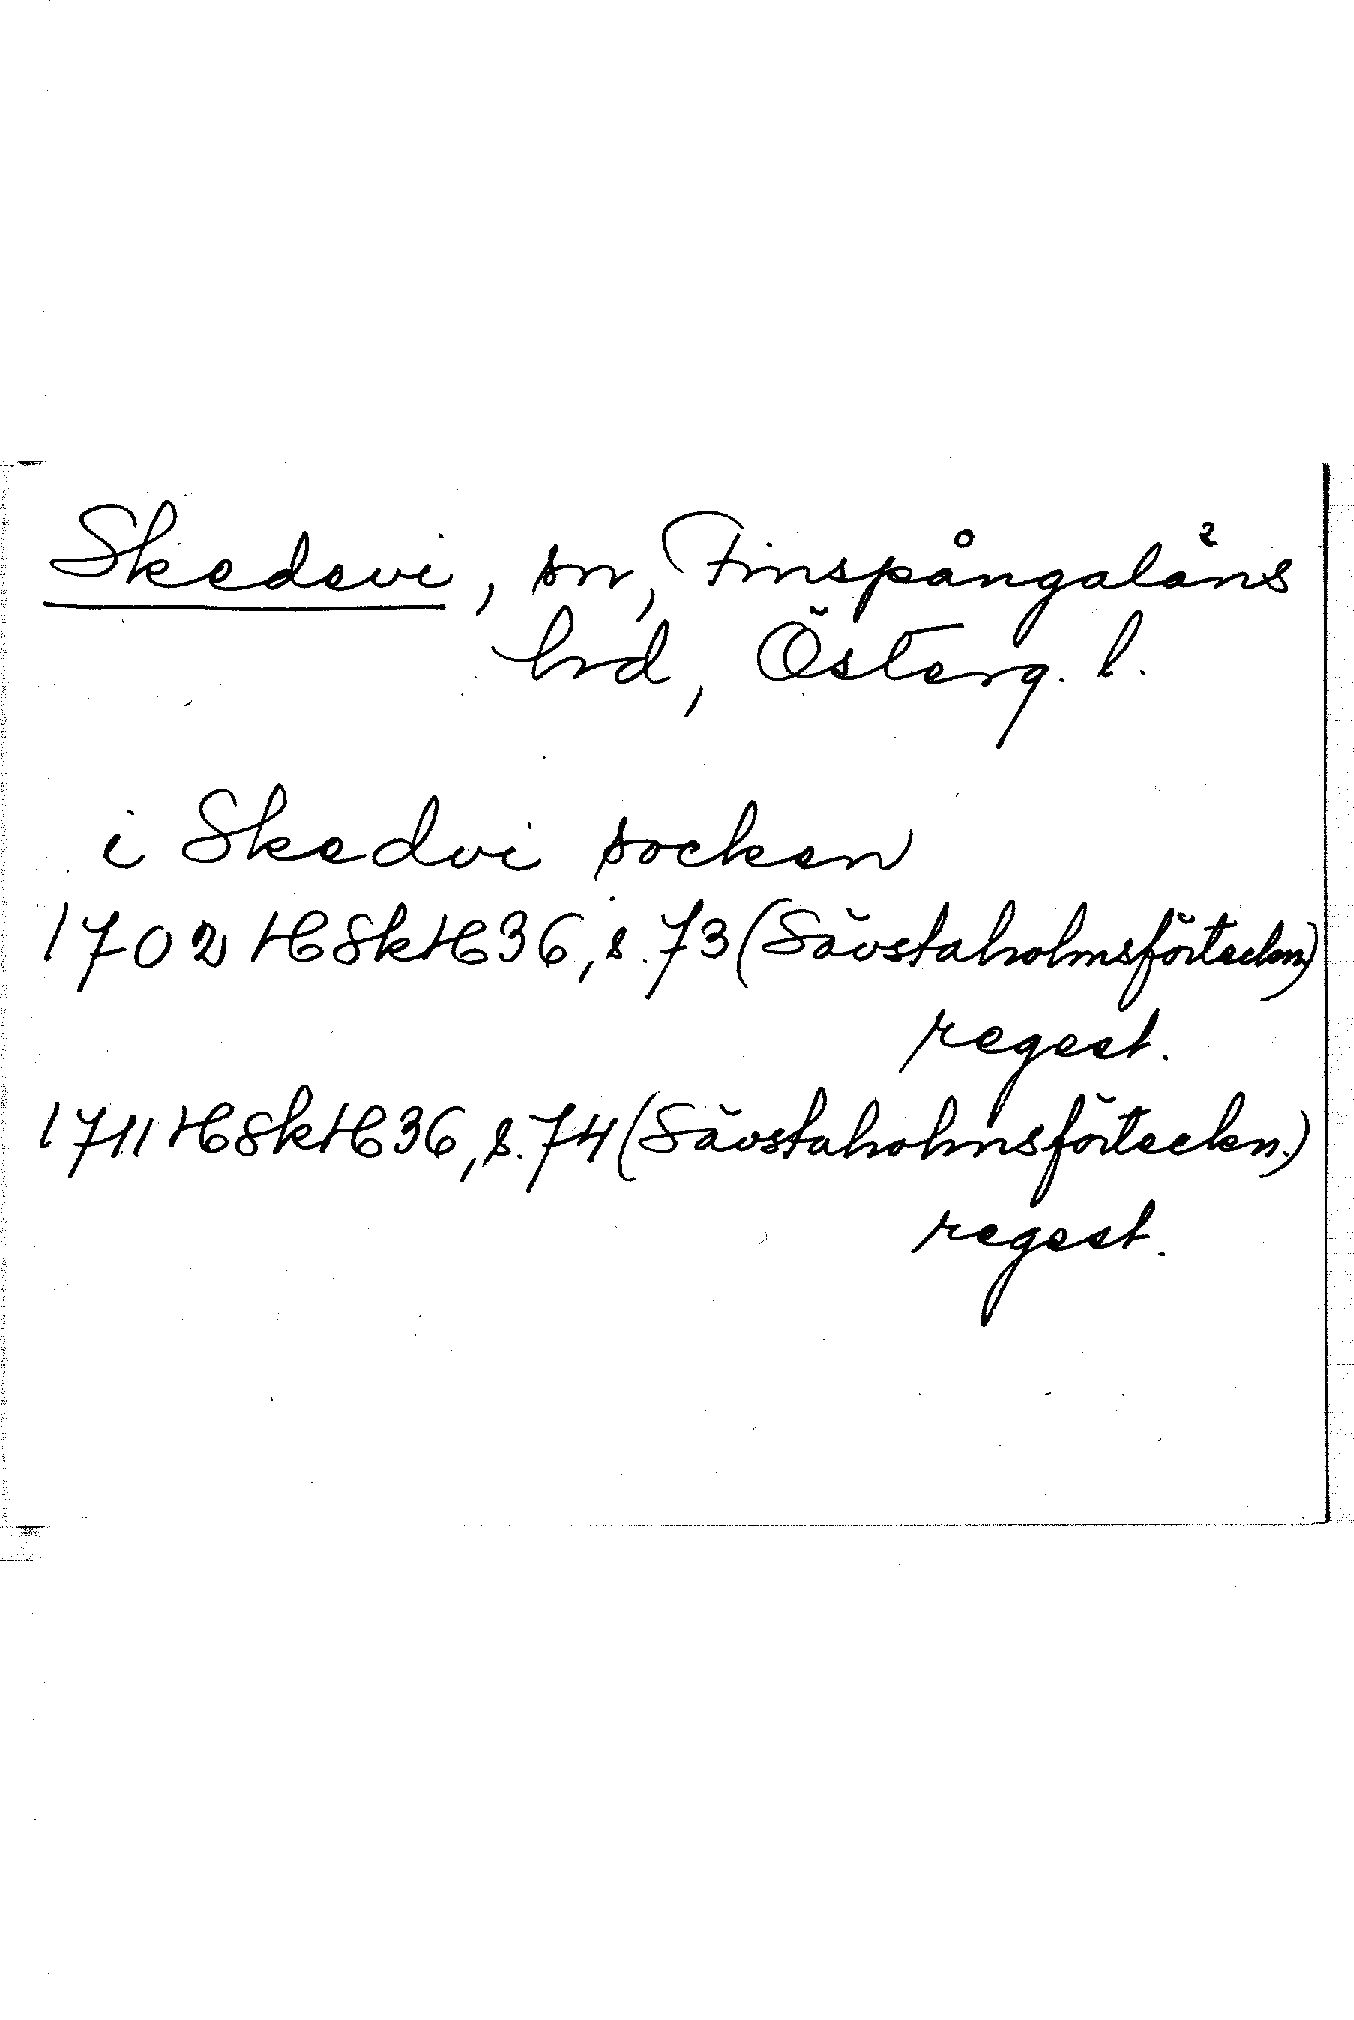 Skedevi, sn, Finspångaläns
hrd, Österg. l.
i Skedvi socken
1702 HSkH 36, s. 73 (Sävstaholmsförteckn.)
regest.
1711 HSkH 36, s. 74 (Sävstaholmsförteckn.)
regest.